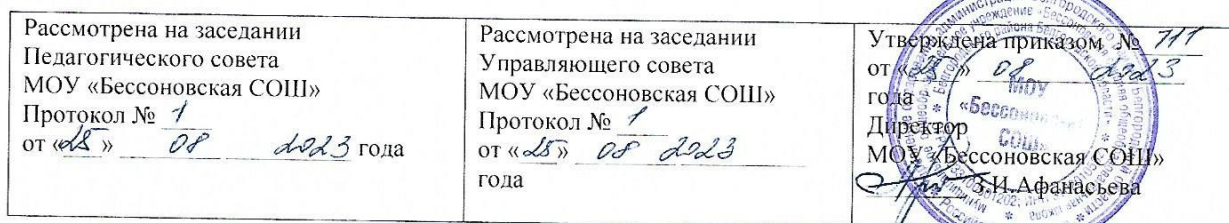 Рассмотрена на заседании
Педагогического совета
МОУ «Бессоновская СОШ»
Протокол № 1
от «25» 08 2023 года
Рассмотрена на заседании
Управляющего совета
МОУ «Бессоновская СОШ»
Протокол № 1
от «25» 08 2023
года
Утверждена приказом №
от «25» 08 2023
года
Директор
МОУ «Бессоновская СОШ»
З.И.Афанасьева
МОУ
«Бессоновская
СОШ»